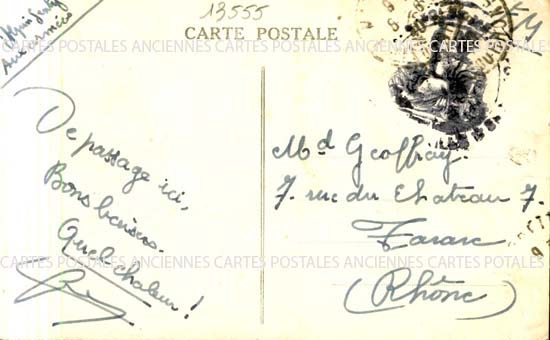 13555
CARTE POSTALE
aux armées
CARTES POSTALES ANCIENNES CARTES POSTALES ANCIENNES CARTES POSTALES
De passage ici,
Bons baisers.
Quel chaleur !
Md Geoffray.
7. rue du Chateau 7.
Tarare
CARTES POSTALES ANCIENNES CARTES POSTALES ANCIENNES CARTES POSTALES
(Rhône)